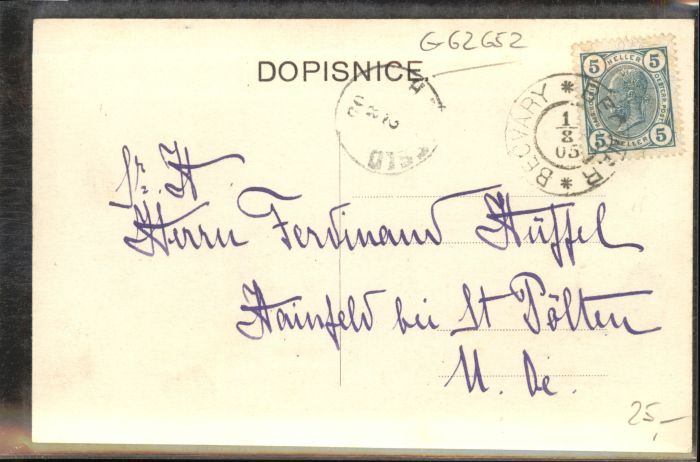 G62652
DOPISNICE.
5 HELLER 5
5 HELLER 5
BEČVÁRY
1
8
05
Sr. H.
Herrn Ferdinand Hüffel
Hainfeld bei St Pölten
N. Oe.
25,-